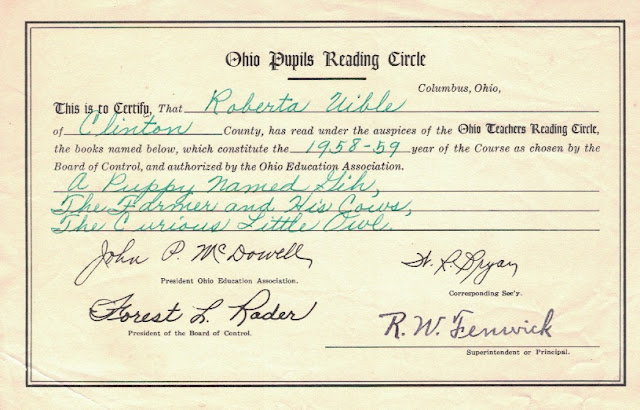 Ohio Pupils Reading Circle
Columbus, Ohio,
This is to Certify, That Roberta Uible
of Clinton County, has read under the auspices of the Ohio Teachers Reading Circle,
the books named below, which constitute the 1958-59 year of the Course as chosen by the
Board of Control, and authorized by the Ohio Education Association.
A Puppy Named Gih,
The Farmer and His Cows,
The Curious Little Owl.
John P. McDowell
President Ohio Education Association.
W. R. Bryan
Corresponding Sec'y.
Forest L. Rader
President of the Board of Control.
R. W. Fenwick
Superintendent or Principal.